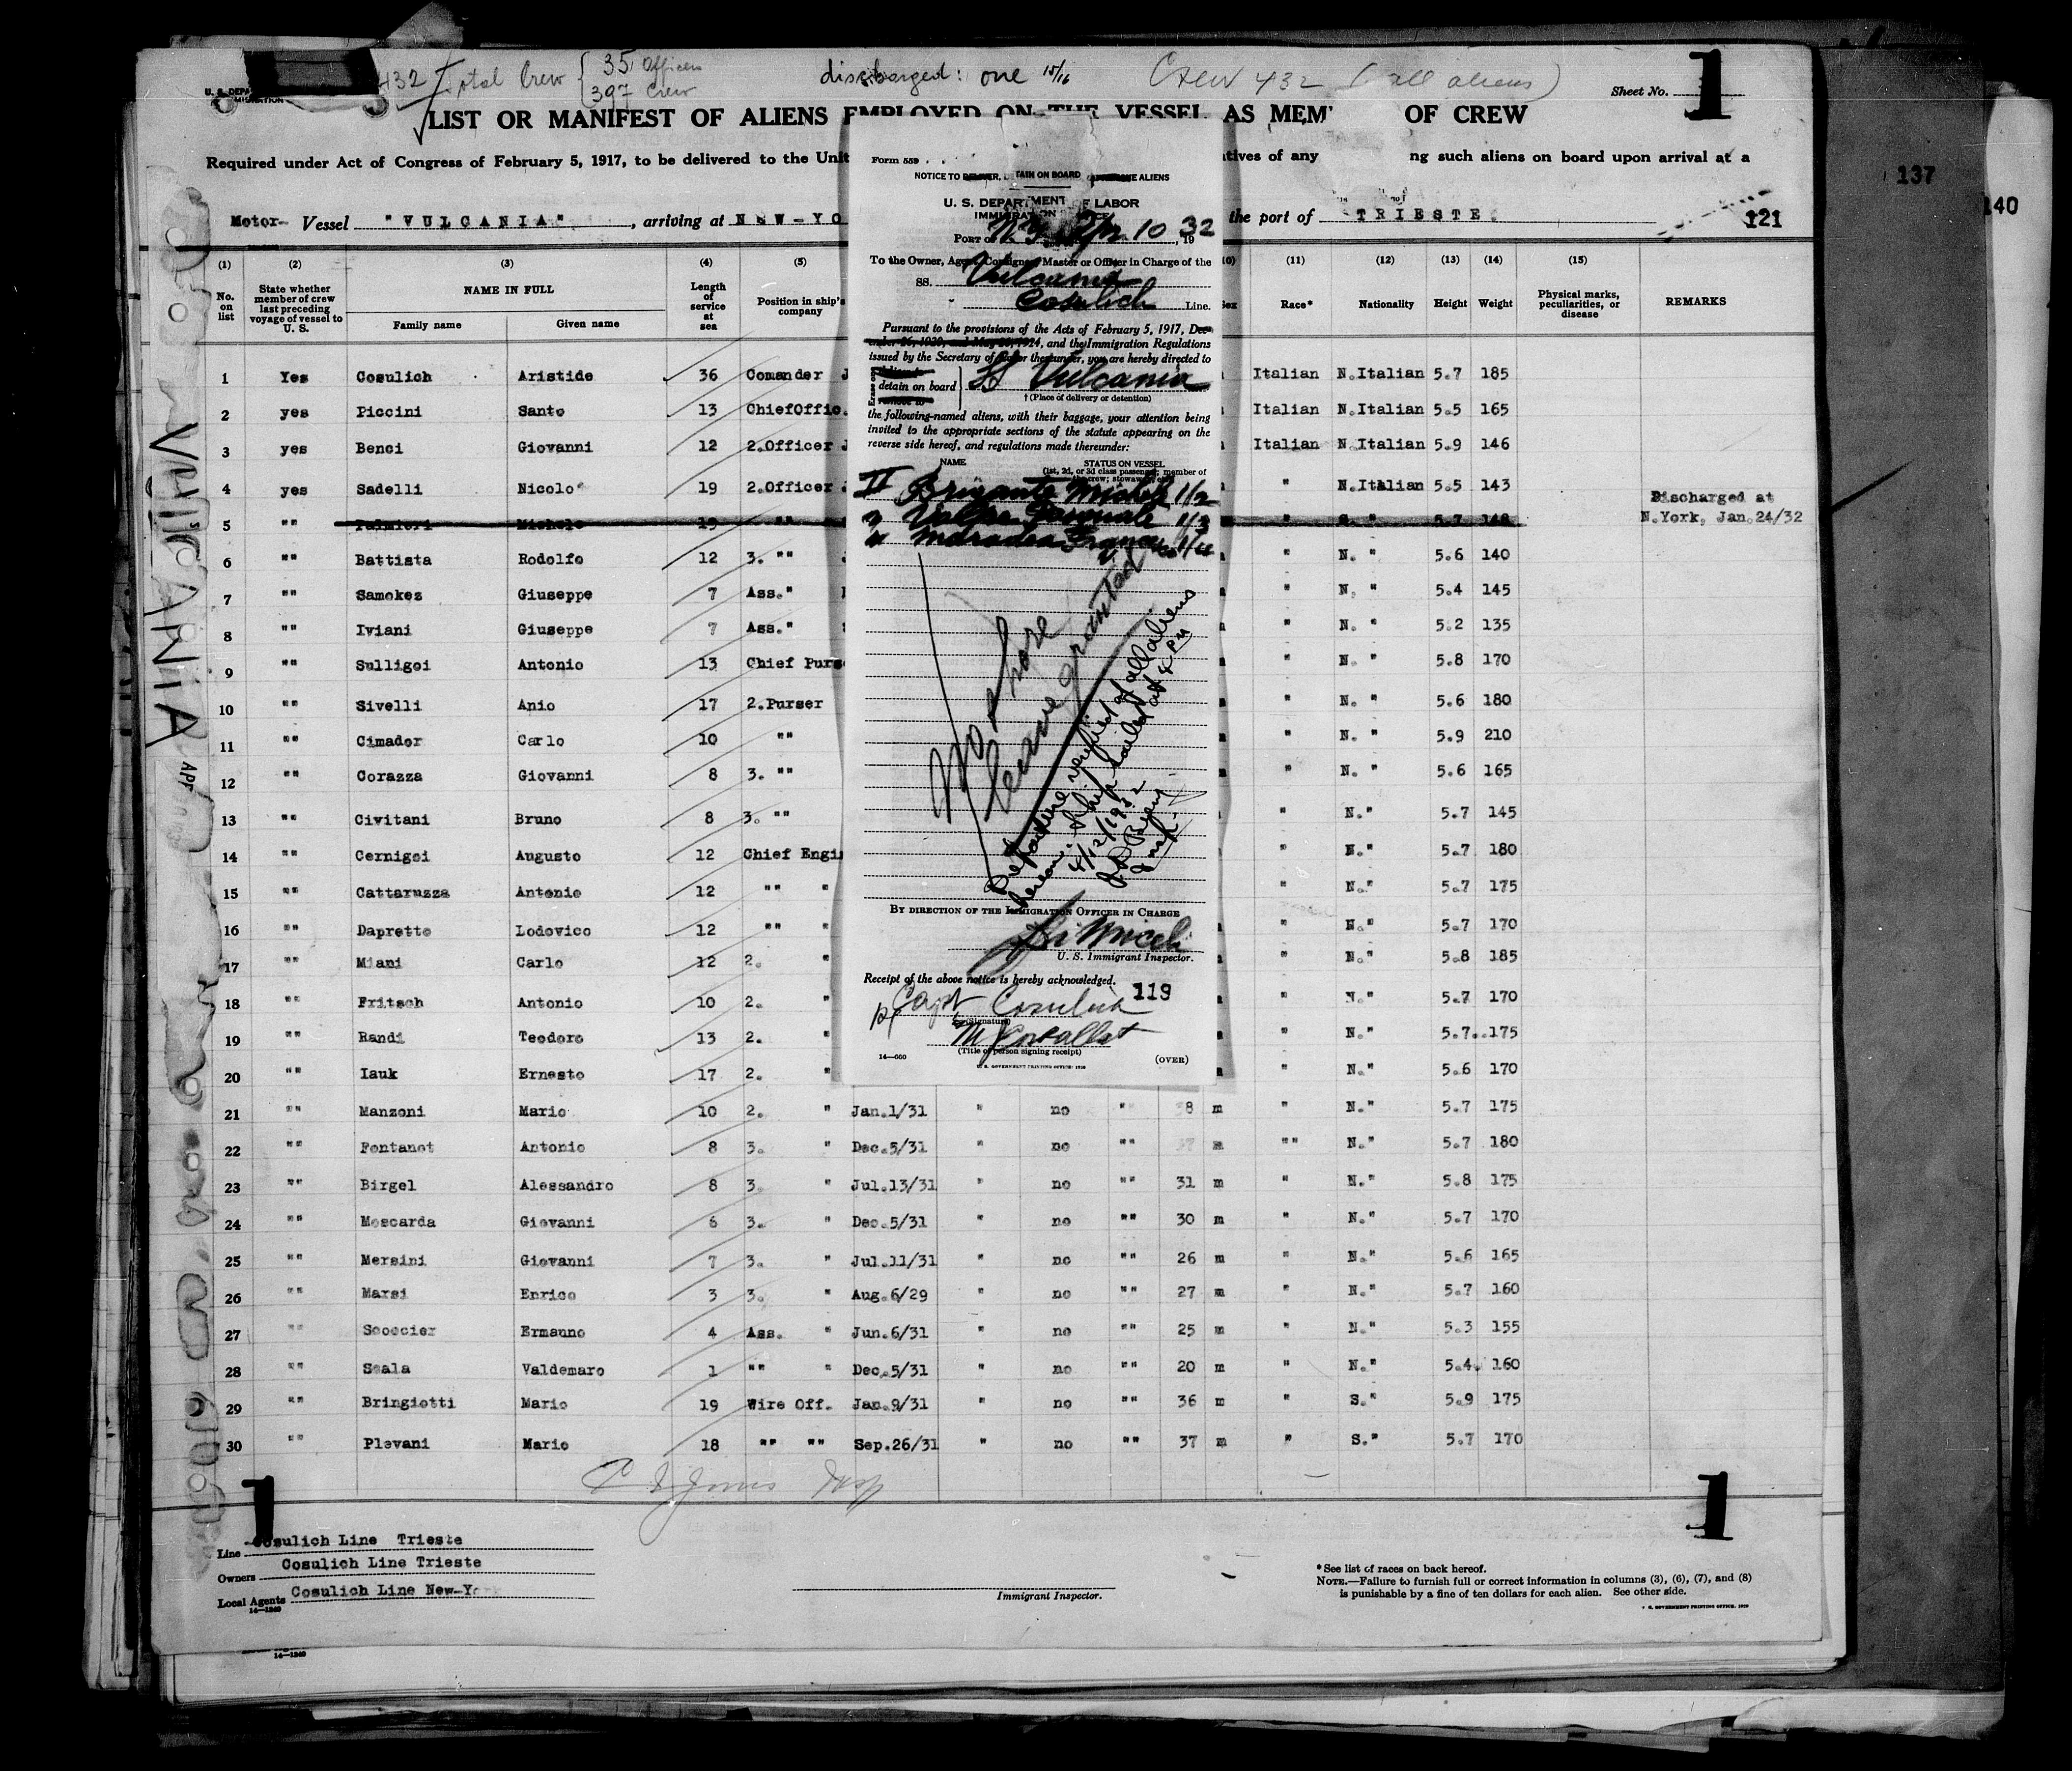 432 Total Crew { 35 Officers
397 Crew
discharged: one 15/16
Crew 432 (all aliens)
Sheet No. 1
LIST OR MANIFEST OF ALIENS EMPLOYED ON THE VESSEL AS MEM OF CREW
Required under Act of Congress of February 5, 1917, to be delivered to the Unit
tives of any ng such aliens on board upon arrival at a
Motor- Vessel "VULCANIA", arriving at NEW-YO
the port of TRIESTE
121
137
140
(1) (2) (3) (4) (5) (10) (11) (12) (13) (14) (15)
No. on list
State whether member of crew last preceding voyage of vessel to U. S.
NAME IN FULL
Family name Given name
Length of service at sea
Position in ship's company
Race* Nationality Height Weight
Physical marks, peculiarities, or disease
REMARKS
1 Yes Cosulich Aristide 36 Comander Italian N.Italian 5.7 185
2 yes Piccini Santo 13 ChiefOffic. Italian N.Italian 5.5 165
3 yes Benci Giovanni 12 2.Officer Italian N.Italian 5.9 146
4 yes Sadelli Nicolo' 19 2.Officer " N.Italian 5.5 143
5 "" Palmieri Michele 19 "" " " 5.7 148 Discharged at
N.York, Jan.24/32
6 "" Battista Rodolfo 12 3. "" " N. " 5.6 140
7 "" Samokez Giuseppe 7 Ass." " N. " 5.4 145
8 "" Iviani Giuseppe 7 Ass." " N. " 5.2 135
9 "" Sulligoi Antonio 13 Chief Purs " N. " 5.8 170
10 "" Sivelli Anio 17 2.Purser " N. " 5.6 180
11 "" Cimador Carlo 10 "" " N. " 5.9 210
12 "" Corazza Giovanni 8 3. "" " N. " 5.6 165
13 "" Civitani Bruno 8 3. "" " N." 5.7 145
14 "" Cernigoi Augusto 12 Chief Engi " N." 5.7 180
15 "" Cattaruzza Antonio 12 "" " " N." 5.7 175
16 "" Dapretto Lodovico 12 "" " " N." 5.7 170
17 "" Miani Carlo 12 2. " " N." 5.8 185
18 "" Fritsch Antonio 10 2. " " N." 5.7 170
19 "" Randi Teodoro 13 2. " " N." 5.7. 175
20 "" Iauk Ernesto 17 2. " " N." 5.6 170
21 "" Manzoni Mario 10 2. " Jan.1/31 " no "" 8 m " N." 5.7 175
22 "" Fontanot Antonio 8 3. " Dec.5/31 " no "" m "" N." 5.7 180
23 "" Birgel Alessandro 8 3. " Jul.13/31 " no "" 31 m " N." 5.8 175
24 "" Moscarda Giovanni 6 3. " Dec.5/31 " no "" 30 m " N." 5.7 170
25 "" Mersini Giovanni 7 3. " Jul.11/31 " no "" 26 m " N." 5.6 165
26 "" Marsi Enrico 3 3. " Aug.6/29 " no "" 27 m " N." 5.7 160
27 "" Scoccier Ermanno 4 Ass. " Jun.6/31 " no "" 25 m " N." 5.3 155
28 "" Scala Valdemaro 1 "" " Dec.5/31 " no "" 20 m " N." 5.4. 160
29 "" Bringiotti Mario 19 Wire Off. Jan.9/31 " no "" 36 m " S." 5.9 175
30 "" Plevani Mario 18 "" "" Sep.26/31 " no "" 37 m " S." 5.7 170
VULCANIA
Form 559
NOTICE TO DELIVER, DETAIN ON BOARD ALIENS
U. S. DEPARTMENT OF LABOR
IMMIGRATION SERVICE
Port of N.Y. Apr 10, 1932
To the Owner, Agent, Consignee, Master or Officer in Charge of the
SS. Vulcania
Cosulich Line.
Pursuant to the provisions of the Acts of February 5, 1917, Dec-
ember 26, 1920, and May 26, 1924, and the Immigration Regulations
issued by the Secretary of Labor thereunder, you are hereby directed to
detain on board } SS Vulcania
† (Place of delivery or detention)
the following-named aliens, with their baggage, your attention being
invited to the appropriate sections of the statute appearing on the
reverse side hereof, and regulations made thereunder:
NAME STATUS ON VESSEL
(1st, 2d, or 3d class passenger; member of
crew; stowaway
Brigante Michele 1/2
Volpe Pasquale 1/3
Francesco 1/4
No shore
leave granted
Departure verified of all aliens
hereon. Ship sailed at 4 PM
4/12/1932
Insp.
BY DIRECTION OF THE IMMIGRATION OFFICER IN CHARGE
U. S. Immigrant Inspector.
Receipt of the above notice is hereby acknowledged.
119
Capt Cosulich
(Signature)
(Title of person signing receipt)
14—660 (OVER)
U. S. GOVERNMENT PRINTING OFFICE: 1930
Jones Insp
1 1
Line Cosulich Line Trieste
Owners Cosulich Line Trieste
Local Agents Cosulich Line New-Y
14—1240
Immigrant Inspector.
*See list of races on back hereof.
NOTE.—Failure to furnish full or correct information in columns (3), (6), (7), and (8)
is punishable by a fine of ten dollars for each alien. See other side.
14—1240